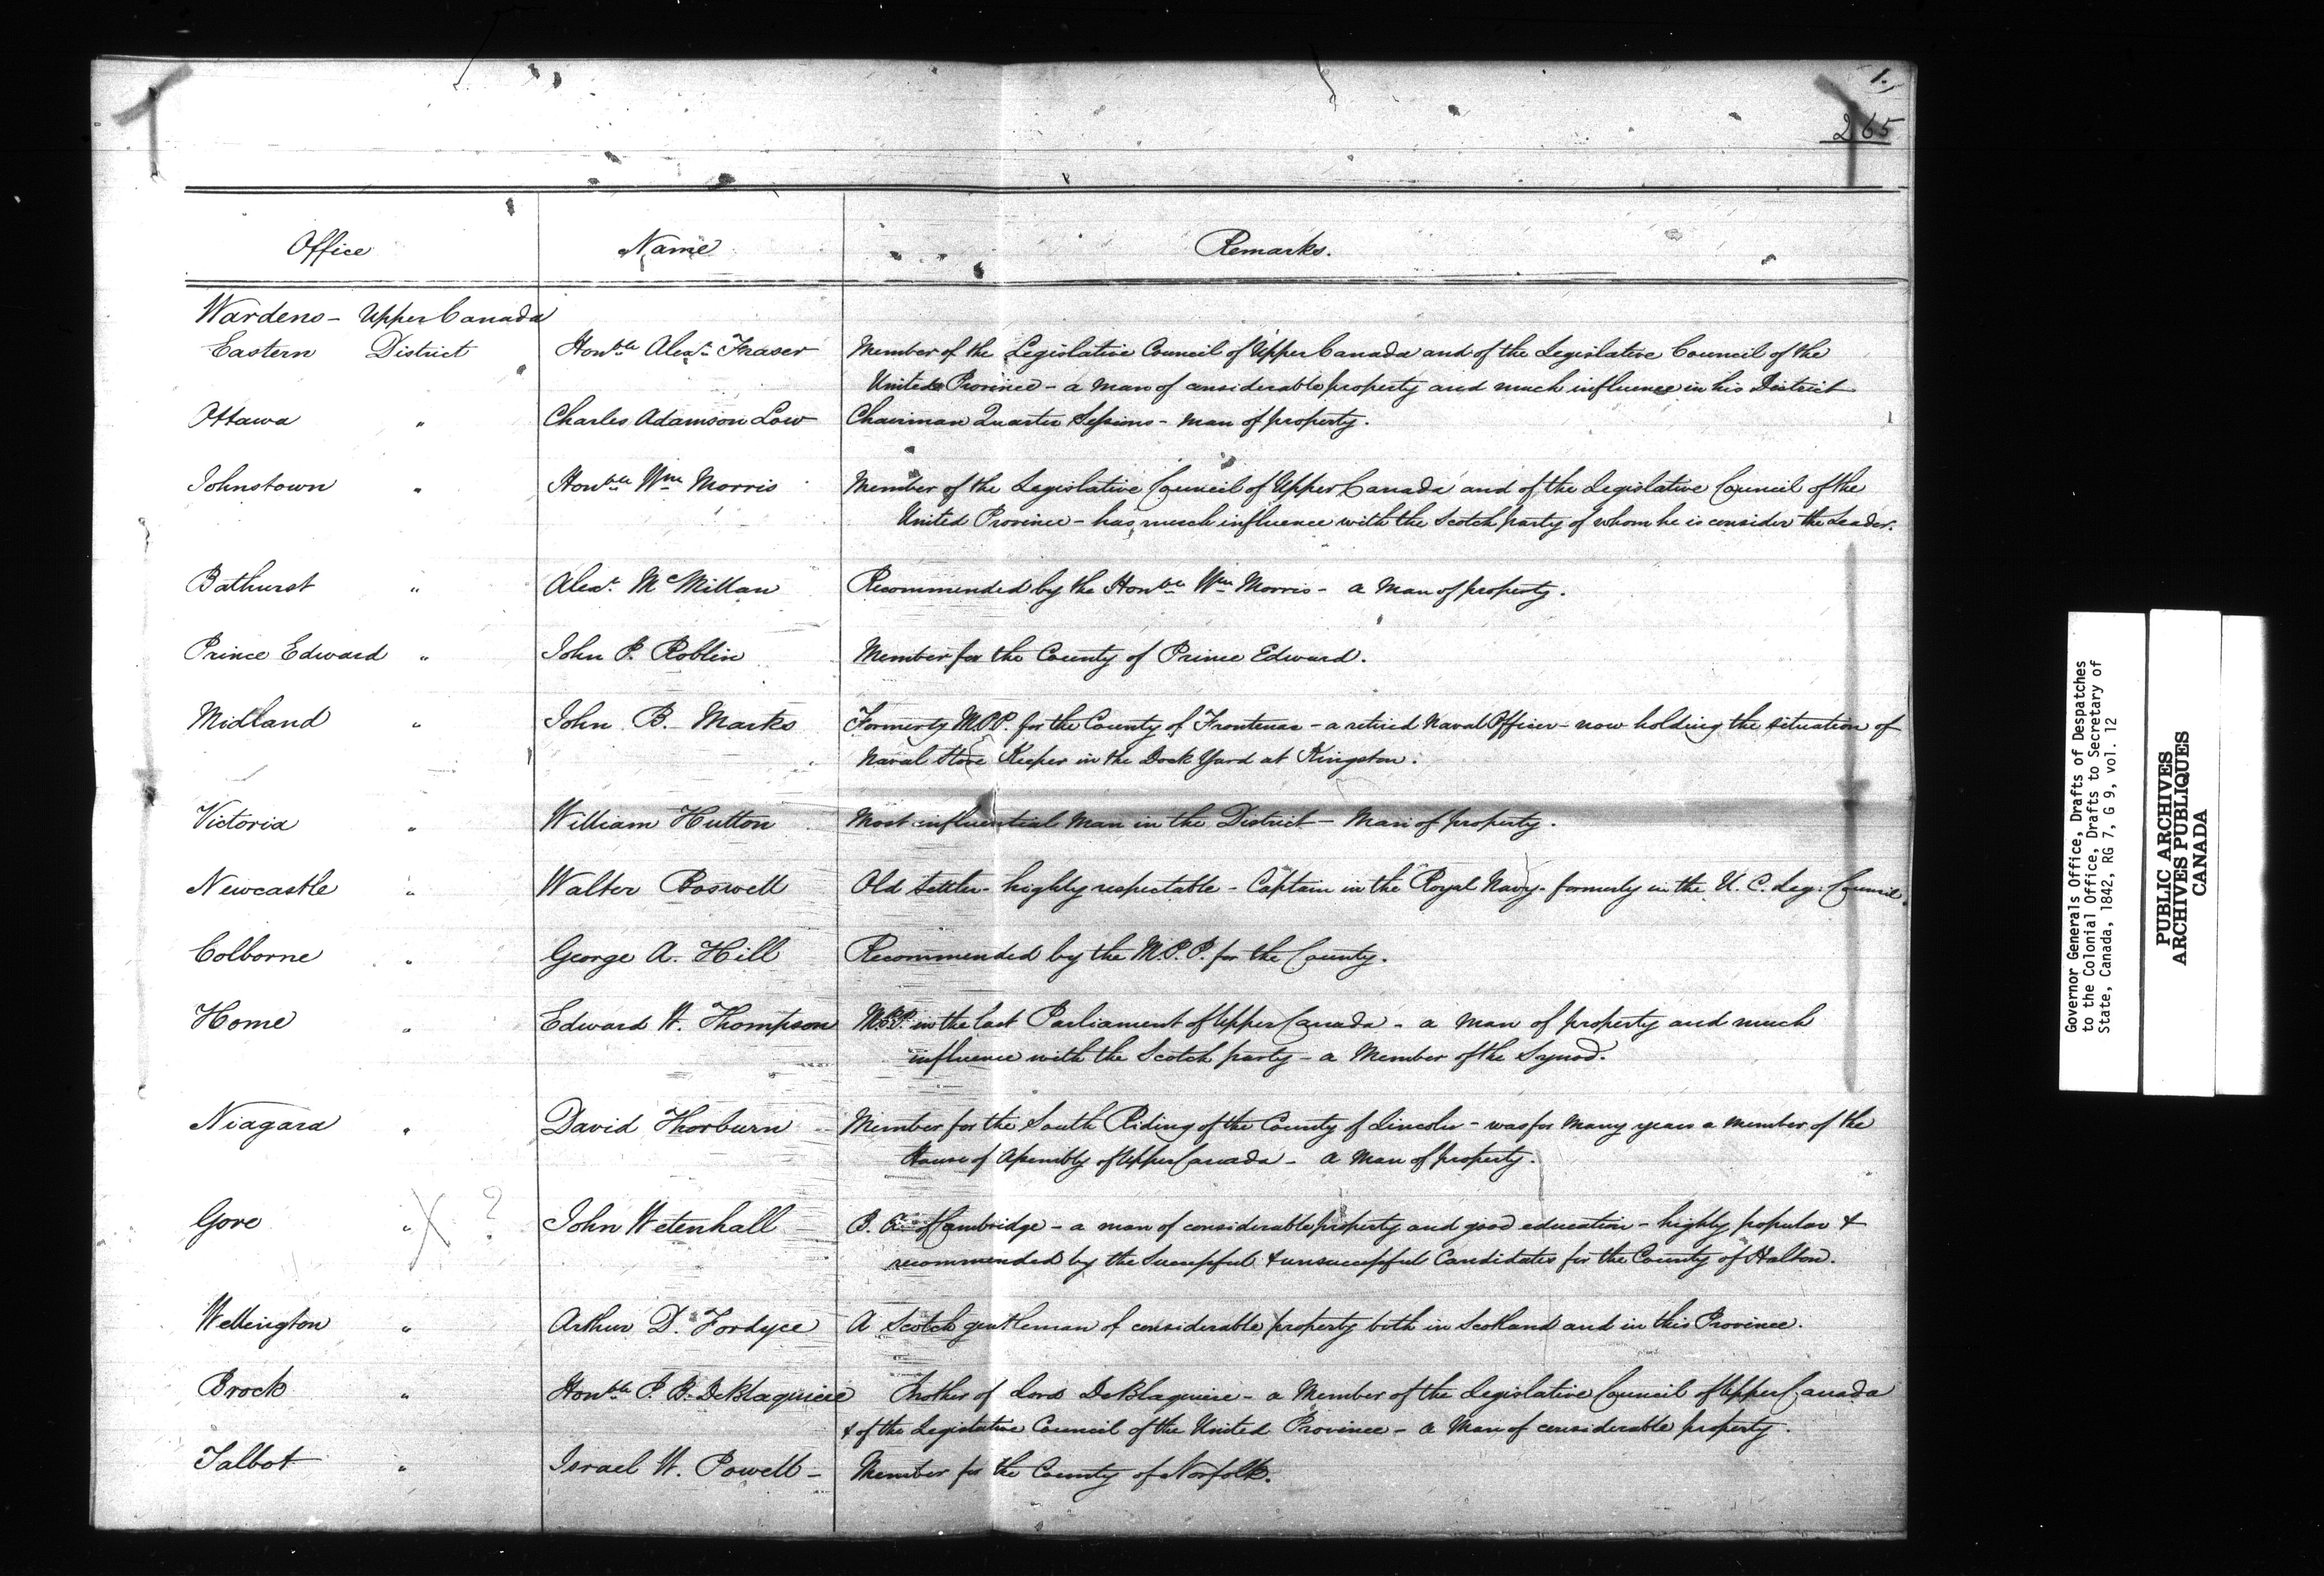 1.
265
Office Name Remarks.
Wardens - Upper Canada
Eastern District Honble Alexr Fraser Member of the Legislative Council of Upper Canada and of the Legislative Council of the
United Province - a man of considerable property and much influence in his District
Ottawa " Charles Adamson Low Chairman Quarter Sessions - man of property.
Johnstown " Honble Wm Morris Member of the Legislative Council of Upper Canada and of the Legislative Council of the
United Province - has much influence with the Scotch party of whom he is consider the Leader.
Bathurst " Alexr McMillan Recommended by the Honble Wm Morris - a Man of property.
Prince Edward " John P. Roblin Member for the County of Prince Edward.
Midland " John B. Marks Formerly M.P.P. for the County of Frontenac - a retired Naval Officer - now holding the situation of
Naval Store Keeper in the Dock Yard at Kingston.
Victoria " William Hutton Most influential Man in the District - Man of property.
Newcastle " Walter Boswell Old Settler - highly respectable - Captain in the Royal Navy - formerly in the U. C. Leg: Council.
Colborne " George A. Hill Recommended by the M.P.P. for the County.
Home " Edward W. Thompson M.P.P. in the last Parliament of Upper Canada - a Man of property and much
influence with the Scotch party - a Member of the Synod.
Niagara " David Thorburn Member for the South Riding of the County of Lincoln - was for many years a member of the
House of Assembly of Upper Canada - a Man of property.
Gore " X ? John Wetenhall B. A. of Cambridge - a man of considerable property and good education - highly popular &
recommended by the Successful & unsuccessful Candidates for the County of Halton.
Wellington " Arthur D. Fordyce A Scotch gentleman of considerable property both in Scotland and in this Province.
Brock " Honble P. B. DeBlaquiere Brother of Lord DeBlaquiere - a Member of the Legislative Council of Upper Canada
& of the Legislative Council of the United Province - a Man of considerable property.
Talbot " Israel W. Powell - Member for the County of Norfolk.
Governor Generals Office, Drafts of Despatches
to the Colonial Office, Drafts to Secretary of
State, Canada, 1842, RG 7, G 9, vol. 12
PUBLIC ARCHIVES
ARCHIVES PUBLIQUES
CANADA